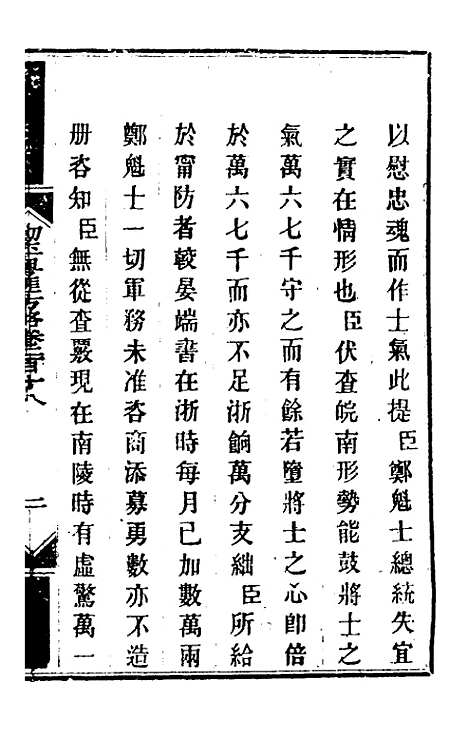 以慰忠魂而作士氣此提臣鄭魁士總統失宜
之實在情形也臣伏查皖南形勢能鼓將士之
氣萬六七千守之而有餘若墮將士之心卽倍
於萬六七千而亦不足浙餉萬分支絀臣所給
於甯防者較晏端書在浙時每月已加數萬兩
鄭魁士一切軍務未准咨商添募勇數亦不造
册咨知臣無從查覈現在南陵時有虛驚萬一
二